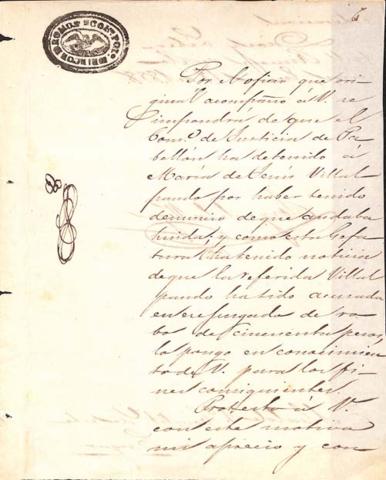 Por el oficio que ori
ginal acompaño á V. se
impondrá de que el
Com.o de Justicia de Pa
bellón ha detenido á
María de Jesus Villal
pando por haber tenido
denuncio de que andaba
huida, y como esta Gefa
tura ha tenido noticia
de que la referida Villal
pando ha sido acusada
en ese juzgado de ro
bo de cincuenta pesos,
lo pongo en conocimien
to de V. para los fi
nes consiguientes.
Protesto á V.
con este motivo
mi aprecio y con